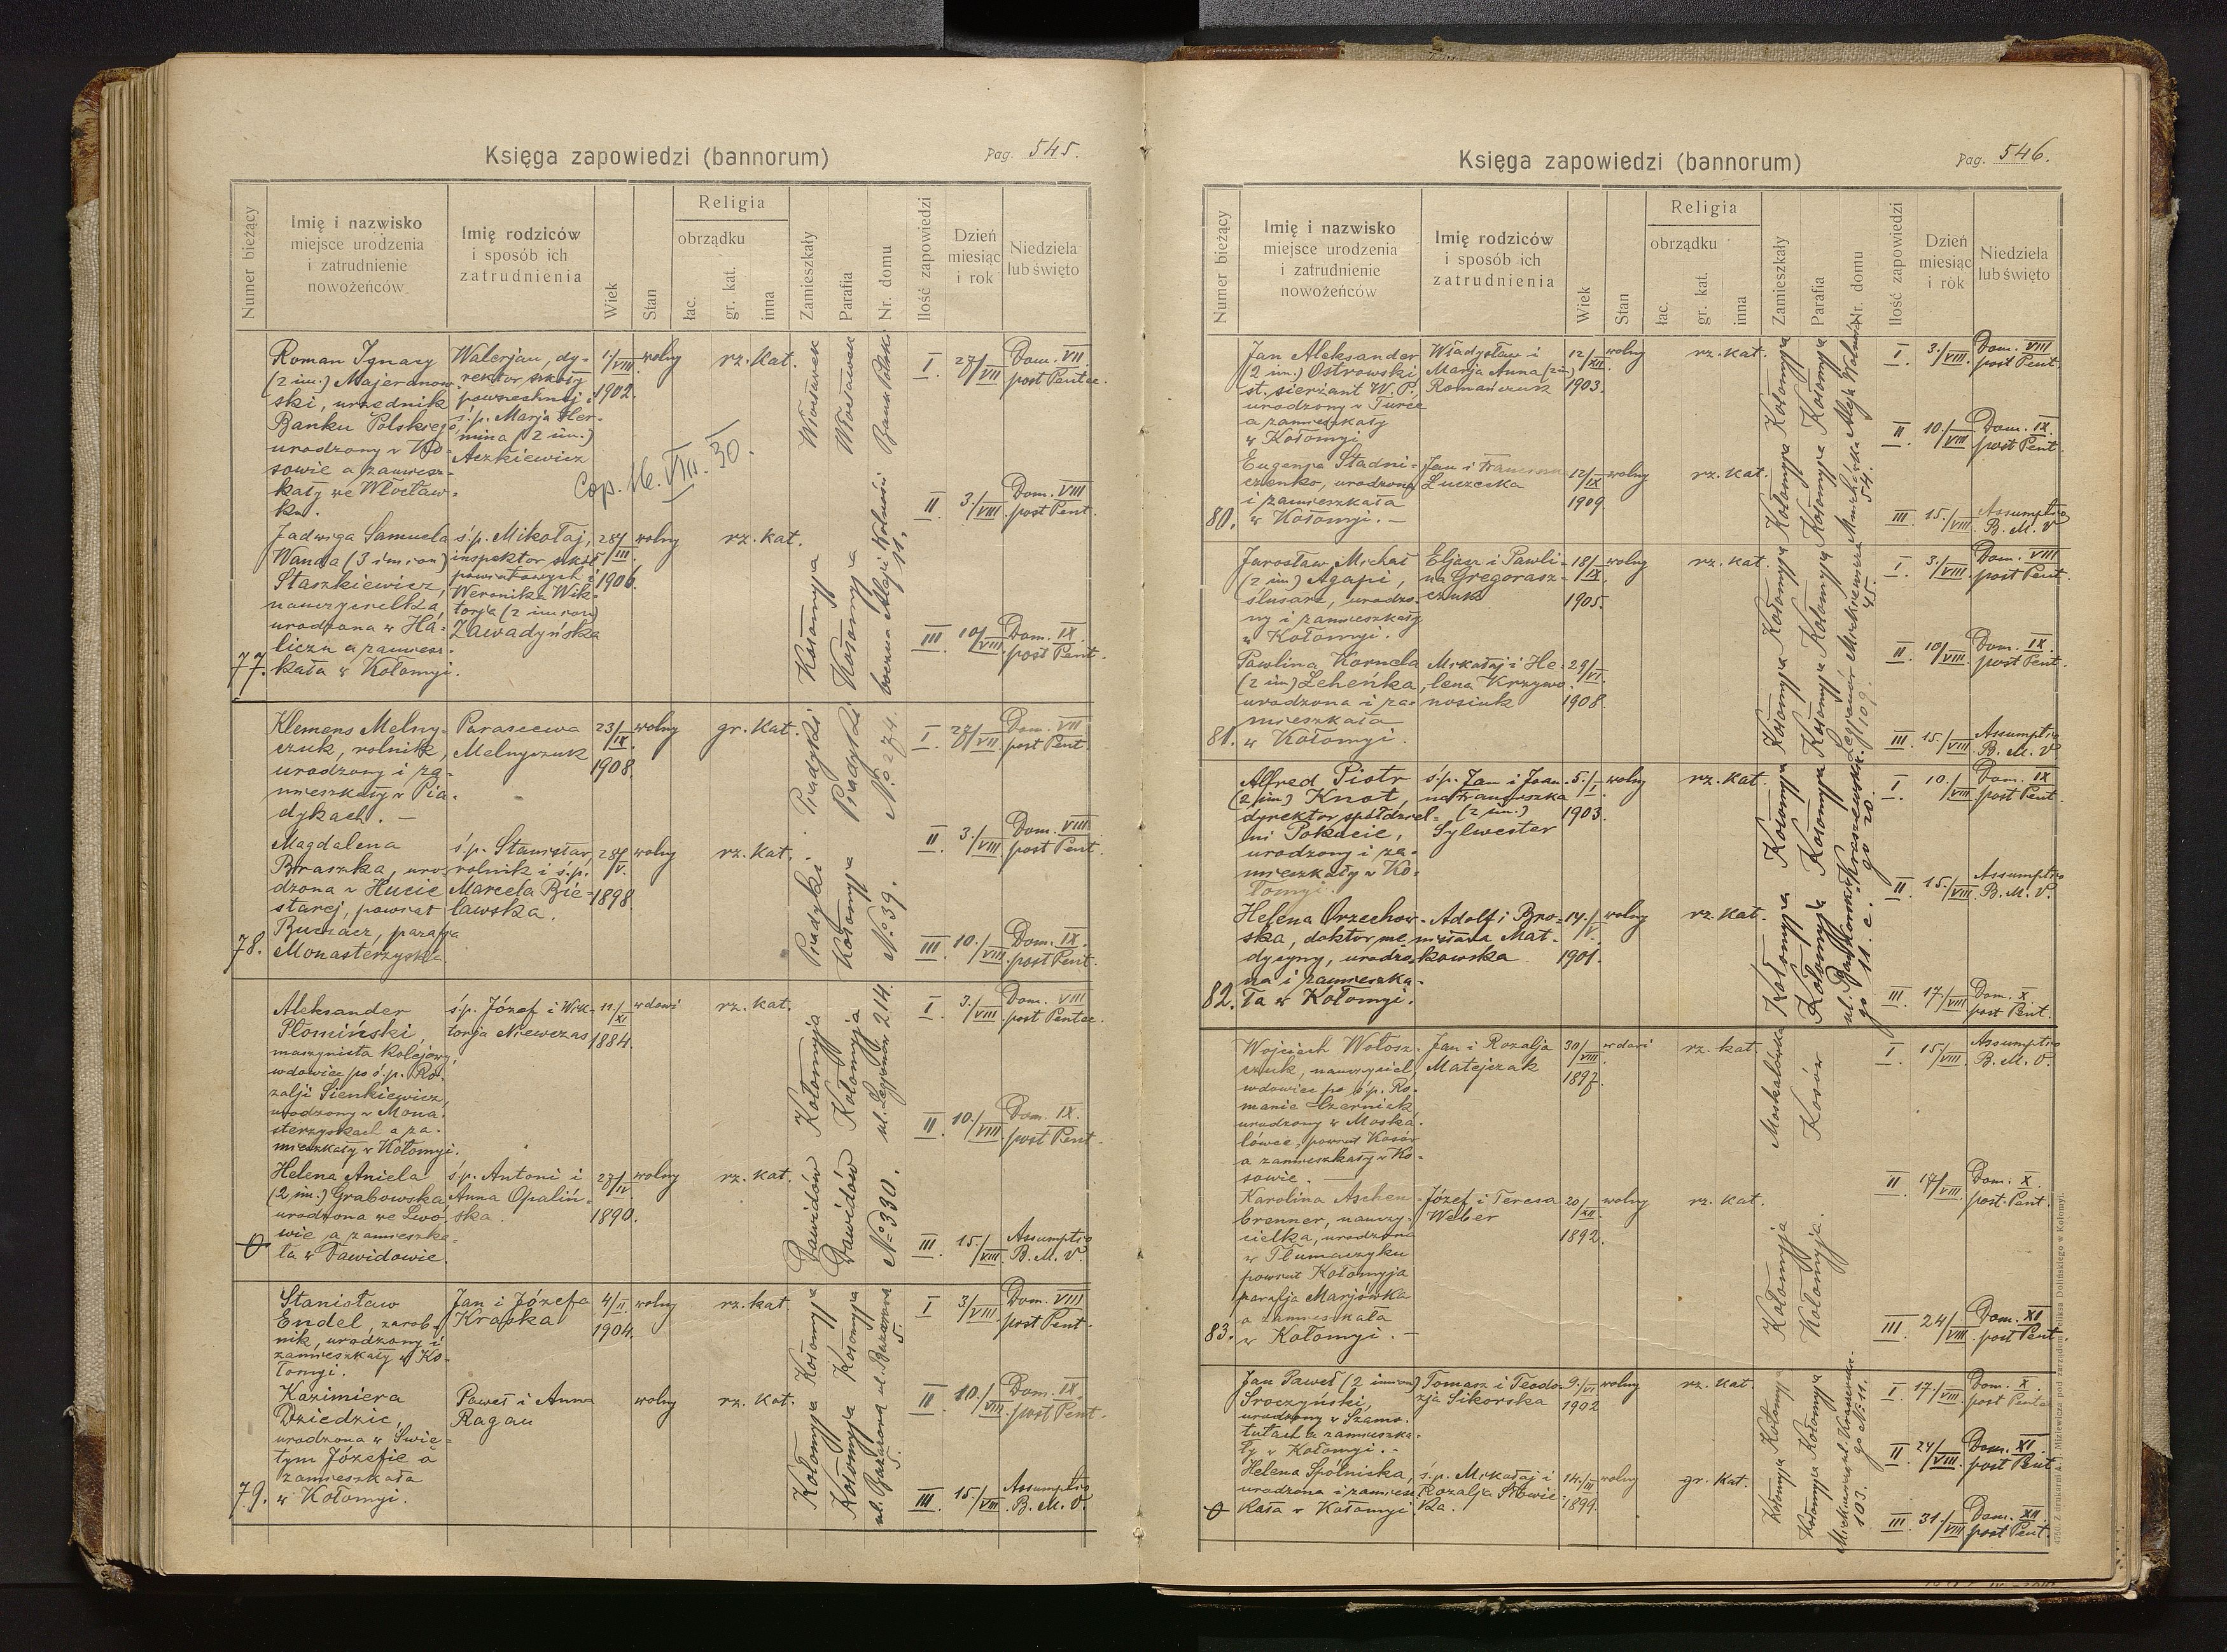 Księga zapowiedzi (bannorum)
Pag. 545.
Numer bieżący
Imię i nazwisko
miejsce urodzenia
i zatrudnienie
nowożeńców
Imię rodziców
i sposób ich
zatrudnienia
Wiek
Stan
Religia
obrządku
łac.
gr. kat.
inna
Zamieszkały
Parafia
Nr. domu
Ilość zapowiedzi
Dzień
miesiąc
i rok
Niedziela
lub święto
Roman Ignacy
(2 im.) Majeranow-
ski, urzędnik
Banku Polskiego,
urodzony w Ko-
sowie a zamiesz-
kały we Włocław-
ku.
Walerjan, dy-
rektor szkoły
powszechnej i
ś.p. Marja Her-
mina (2 im.)
Aczkiewicz
1./VIII. 1902.
wolny
rz. kat.
Włocławek
Włocławek
Bank Polski
Cop. 16. VIII. 30.
I. 27/VII Dom. VII
post Pentec.
II 3./VIII. Dom. VIII
post Pent.
III 10/VIII. Dom. IX.
post Pent.
77.
Jadwiga Samuela
Wanda (3 imion)
Staszkiewicz,
nauczycielka,
urodzona w Ha-
liczu a zamiesz-
kała w Kołomyi.
ś.p. Mikołaj,
inspektor szkół
powiatowych i
Weronika Wik-
torja (2 imion)
Zawadyńska
28/III. 1906.
wolny
rz. kat.
Kołomyja
Kołomyja
boczna Aleji Wolności
11.
78.
Klemens Melny-
czuk, rolnik,
urodzony i za-
mieszkały w Pia-
dykach. —
Parascewa
Melnyczuk
23/IX. 1908.
wolny
gr. kat.
Piadyki
Piadyki
No 274.
I. 27/VII. Dom. VII
post Pent.
II 3./VIII. Dom. VIII
post Pent.
III 10./VIII. Dom. IX.
post Pent.
Magdalena
Braszka, uro-
dzona w Hucie
starej, powiat
Buczacz, parafja
Monasterzyska.
ś.p. Stanisław,
rolnik i ś.p.
Marcela Bie-
lawska.
28/V. 1898.
wolny
rz. kat.
Piadyki.
Kołomyja
No 39.
Aleksander
Płomiński,
maszynista kolejowy,
wdowiec po ś.p. Ro-
zalji Sienkiewicz,
urodzony w Mona-
sterzyskach a za-
mieszkały w Kołomyi.
ś.p. Józef i Wik-
torja Niewczas
11./XI 1884.
wdowi
rz. kat.
Kołomyja
Kołomyja
ul. Legionów 214.
I 3./VIII Dom. VIII
post Pentec.
II 10./VIII. Dom. IX.
post Pent.
III 15./VIII. Assumptio
B. M. V.
0
Helena Aniela
(2 im.) Grabowska
urodzona we Lwo-
wie a zamieszka-
ła w Dawidowie.
ś.p. Antoni i
Anna Opaliń-
ska.
27/IV. 1890.
wolny
rz. kat.
Dawidów
Dawidów
No 330.
Stanisław
Endel, zarob-
nik, urodzony i
zamieszkały w Ko-
łomyi.
Jan i Józefa
Krapka
4/II. 1904.
wolny
rz. kat.
Kołomyja
Kołomyja
5.
I 3./VIII. Dom. VIII
post Pent.
II 10./VIII. Dom. IX.
post Pent.
III 15./VIII. Assumptio
B. M. V.
79.
Kazimiera
Dziedzic,
urodzona w Świę-
tym Józefie a
zamieszkała
w Kołomyi.
Paweł i Anna
Ragan
wolny
rz. kat.
Kołomyja
Kołomyja
5.
Księga zapowiedzi (bannorum)
Pag. 546.
Numer bieżący
Imię i nazwisko
miejsce urodzenia
i zatrudnienie
nowożeńców
Imię rodziców
i sposób ich
zatrudnienia
Wiek
Stan
Religia
obrządku
łac.
gr. kat.
inna
Zamieszkały
Parafia
Nr. domu
Ilość zapowiedzi
Dzień
miesiąc
i rok
Niedziela
lub święto
Jan Aleksander
(2 im.) Ostrowski
st. sierżant W. P.,
urodzony w Turce
a zamieszkały
w Kołomyi
Władysław i
Marja Anna (2 im)
Romańczuk
12/XII. 1903.
wolny
rz. kat.
Kołomyja
Kołomyja
Aleja Wolności
54.
I. 3./VIII. Dom. VIII
post Pent.
II 10./VIII Dom. IX.
post Pent.
III 15./VIII. Assumptio
B. M. V
80.
Eugenja Stadni-
czenko, urodzona
i zamieszkała
w Kołomyi. —
Jan i Franciszka
Łuczcka
12/IX 1909
wolny
rz. kat.
Kołomyja
Kołomyja
Jarosław Michał
(2 im) Agapi,
ślusarz, urodzo-
ny i zamieszkały
w Kołomyi.
Eljasz i Pauli-
na Gregorasz-
czuk
18/IX 1905.
wolny
rz. kat.
Kołomyja
Kołomyja
Mickiewicza
45.
I. 3./VIII. Dom. VIII
post Pent.
II 10/VIII. Dom. IX.
post Pent.
III 15./VIII. Assumptio
B. M. V
81.
Pawlina Kornela
(2 im) Leheńka,
urodzona i za-
mieszkała
w Kołomyi.
Mikołaj i He-
lena Krzywo-
nosiuk
29/VI. 1908.
Kołomyja
Kołomyja
Legionów
109.
Alfred Piotr
(2 im.) Knot,
dyrektor spółdziel-
ni Pokucie,
urodzony i za-
mieszkały w Ko-
łomyi.
ś.p. Jan i Joan-
na Franciszka
(2 im.)
Sylwester
5./I. 1903.
wolny
rz. kat.
Kołomyja
Kołomyja
Kraszewskie-
go 20.
I. 10./VIII Dom. IX
post Pent.
II 15./VIII Assumptio
B. M. V.
III 17./VIII Dom. X.
post Pent.
82.
Helena Orzechow-
ska, doktor me-
dycyny, urodzo-
na i zamieszka-
ła w Kołomyi.
Adolf i Bro-
nisława Mat-
kowska
14./V. 1901.
wolny
rz. kat.
Kołomyja
Kołomyja
go 11. c.
Wojciech Wołosz-
czuk, nauczyciel,
wdowiec po ś.p. Ro-
manie Czernick
urodzony w Moska-
lówce, powiat Kosów
a zamieszkały w Ko-
sowie. —
Jan i Rozalja
Matejczak
30/VIII. 1897.
wdowi
rz. kat.
Moskalówka
Kosów
I. 15./VIII Assumptio
B. M. V.
II 17/VIII. Dom. X.
post. Pent.
III 24/VIII. Dom. XI
post Pent.
83.
Karolina Aschen-
brenner, nauczy-
cielka, urodzona
w Tłumaczyku
powiat Kołomyja
parafja Marjówka
a zamieszkała
w Kołomyi. —
Józef i Teresa
Weber
20/XII 1892.
wolny
rz. kat.
Kołomyja
Kołomyja.
Jan Paweł (2 imion)
Sroczyński,
urodzony w Szamo-
tułach a zamieszka-
ły w Kołomyi. -
Tomasz i Teodo-
zja Sikorska
9./VI 1902
wolny
rz. kat.
Kołomyja
Kołomyja
go No 11.
I. 17./VIII. Dom. X.
post Pentec
II 24/VIII. Dom. XI.
post Pent.
III 31./VIII Dom. XII
post Pent.
0
Helena Spólnicka,
urodzona i zamiesz-
kała w Kołomyi
ś.p. Mikołaj i
Rozalja Słowic-
ka.
14./III 1899.
wolny
gr. kat.
Kołomyja
Kołomyja
Mickiewicza
103.
Z drukarni A. J. Miziewicza pod zarządem Feliksa Dolińskiego w Kołomyi.